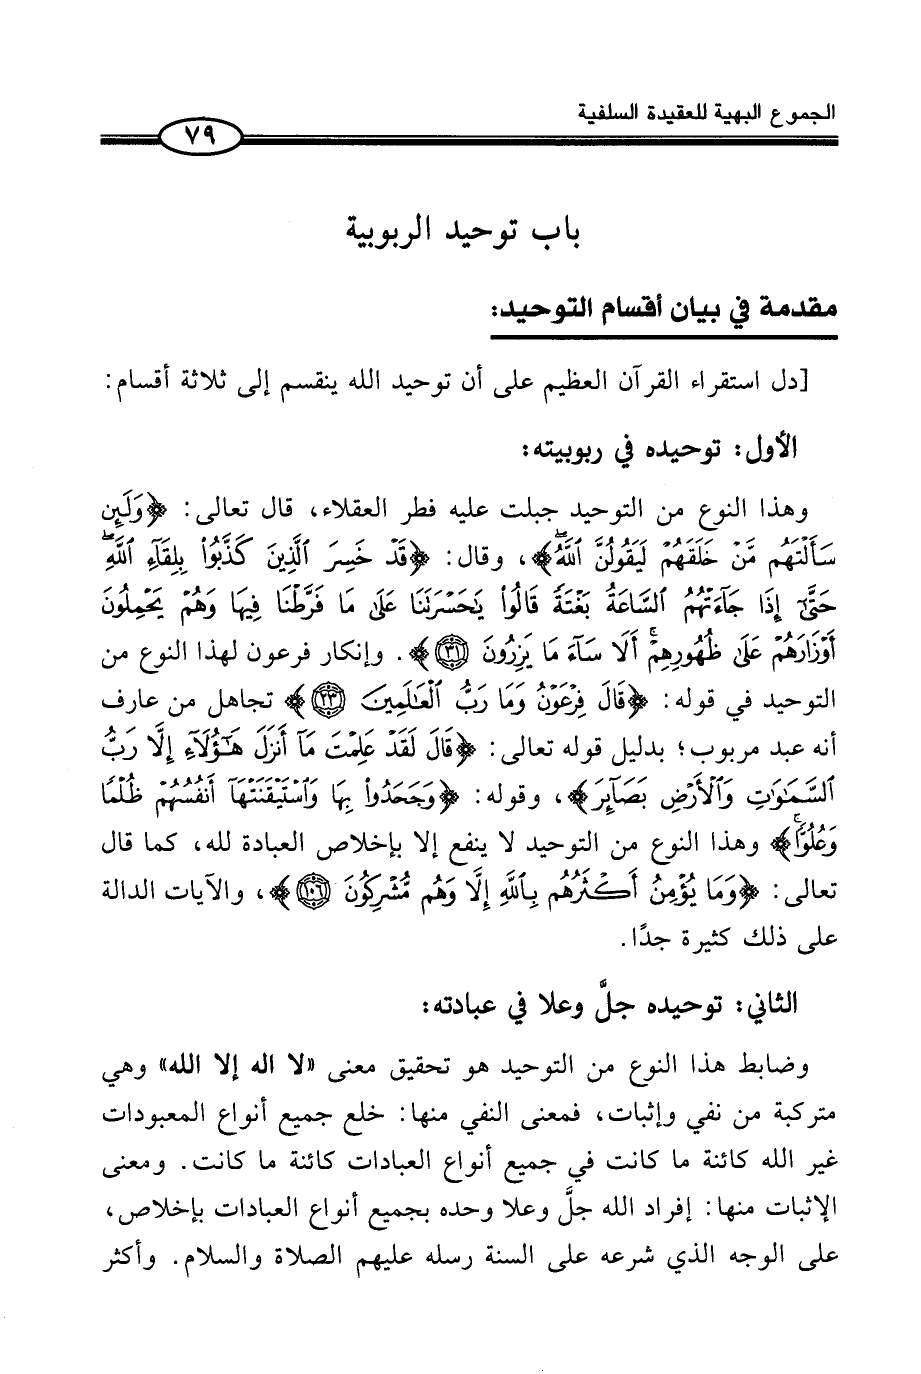 المجموع البهية للعقيدة السلفية
٧٩
باب توحيد الربوبية
مقدمة في بيان أقسام التوحيد:
[دل استقراء القرآن العظيم على أن توحيد الله ينقسم إلى ثلاثة أقسام:
الأول: توحيده في ربوبيته:
وهذا النوع من التوحيد جبلت عليه فطر العقلاء، قال تعالى: ﴿وَلَئِن
سَأَلْتَهُم مَّنْ خَلَقَهُمْ لَيَقُولُنَّ ٱللَّهُۖ﴾، وقال: ﴿قَدْ خَسِرَ ٱلَّذِينَ كَذَّبُوا۟ بِلِقَآءِ ٱللَّهِۖ
حَتَّىٰٓ إِذَا جَآءَتْهُمُ ٱلسَّاعَةُ بَغْتَةً قَالُوا۟ يَٰحَسْرَتَنَا عَلَىٰ مَا فَرَّطْنَا فِيهَا وَهُمْ يَحْمِلُونَ
أَوْزَارَهُمْ عَلَىٰ ظُهُورِهِمْۚ أَلَا سَآءَ مَا يَزِرُونَ ٣١﴾. وإنكار فرعون لهذا النوع من
التوحيد في قوله: ﴿قَالَ فِرْعَوْنُ وَمَا رَبُّ ٱلْعَٰلَمِينَ ٢٣﴾ تجاهل من عارف
أنه عبد مربوب؛ بدليل قوله تعالى: ﴿قَالَ لَقَدْ عَلِمْتَ مَآ أَنزَلَ هَٰٓؤُلَآءِ إِلَّا رَبُّ
ٱلسَّمَٰوَٰتِ وَٱلْأَرْضِ بَصَآئِرَ﴾، وقوله: ﴿وَجَحَدُوا۟ بِهَا وَٱسْتَيْقَنَتْهَآ أَنفُسُهُمْ ظُلْمًا
وَعُلُوًّاۚ﴾ وهذا النوع من التوحيد لا ينفع إلا بإخلاص العبادة لله، كما قال
تعالى: ﴿وَمَا يُؤْمِنُ أَكْثَرُهُم بِٱللَّهِ إِلَّا وَهُم مُّشْرِكُونَ ١٠٦﴾، والآيات الدالة
على ذلك كثيرة جدًا.
الثاني: توحيده جلَّ وعلا في عبادته:
وضابط هذا النوع من التوحيد هو تحقيق معنى «لا اله إلا الله» وهي
متركبة من نفي وإثبات، فمعنى النفي منها: خلع جميع أنواع المعبودات
غير الله كائنة ما كانت في جميع أنواع العبادات كائنة ما كانت. ومعنى
الإثبات منها: إفراد الله جلَّ وعلا وحده بجميع أنواع العبادات بإخلاص،
على الوجه الذي شرعه على السنة رسله عليهم الصلاة والسلام. وأكثر